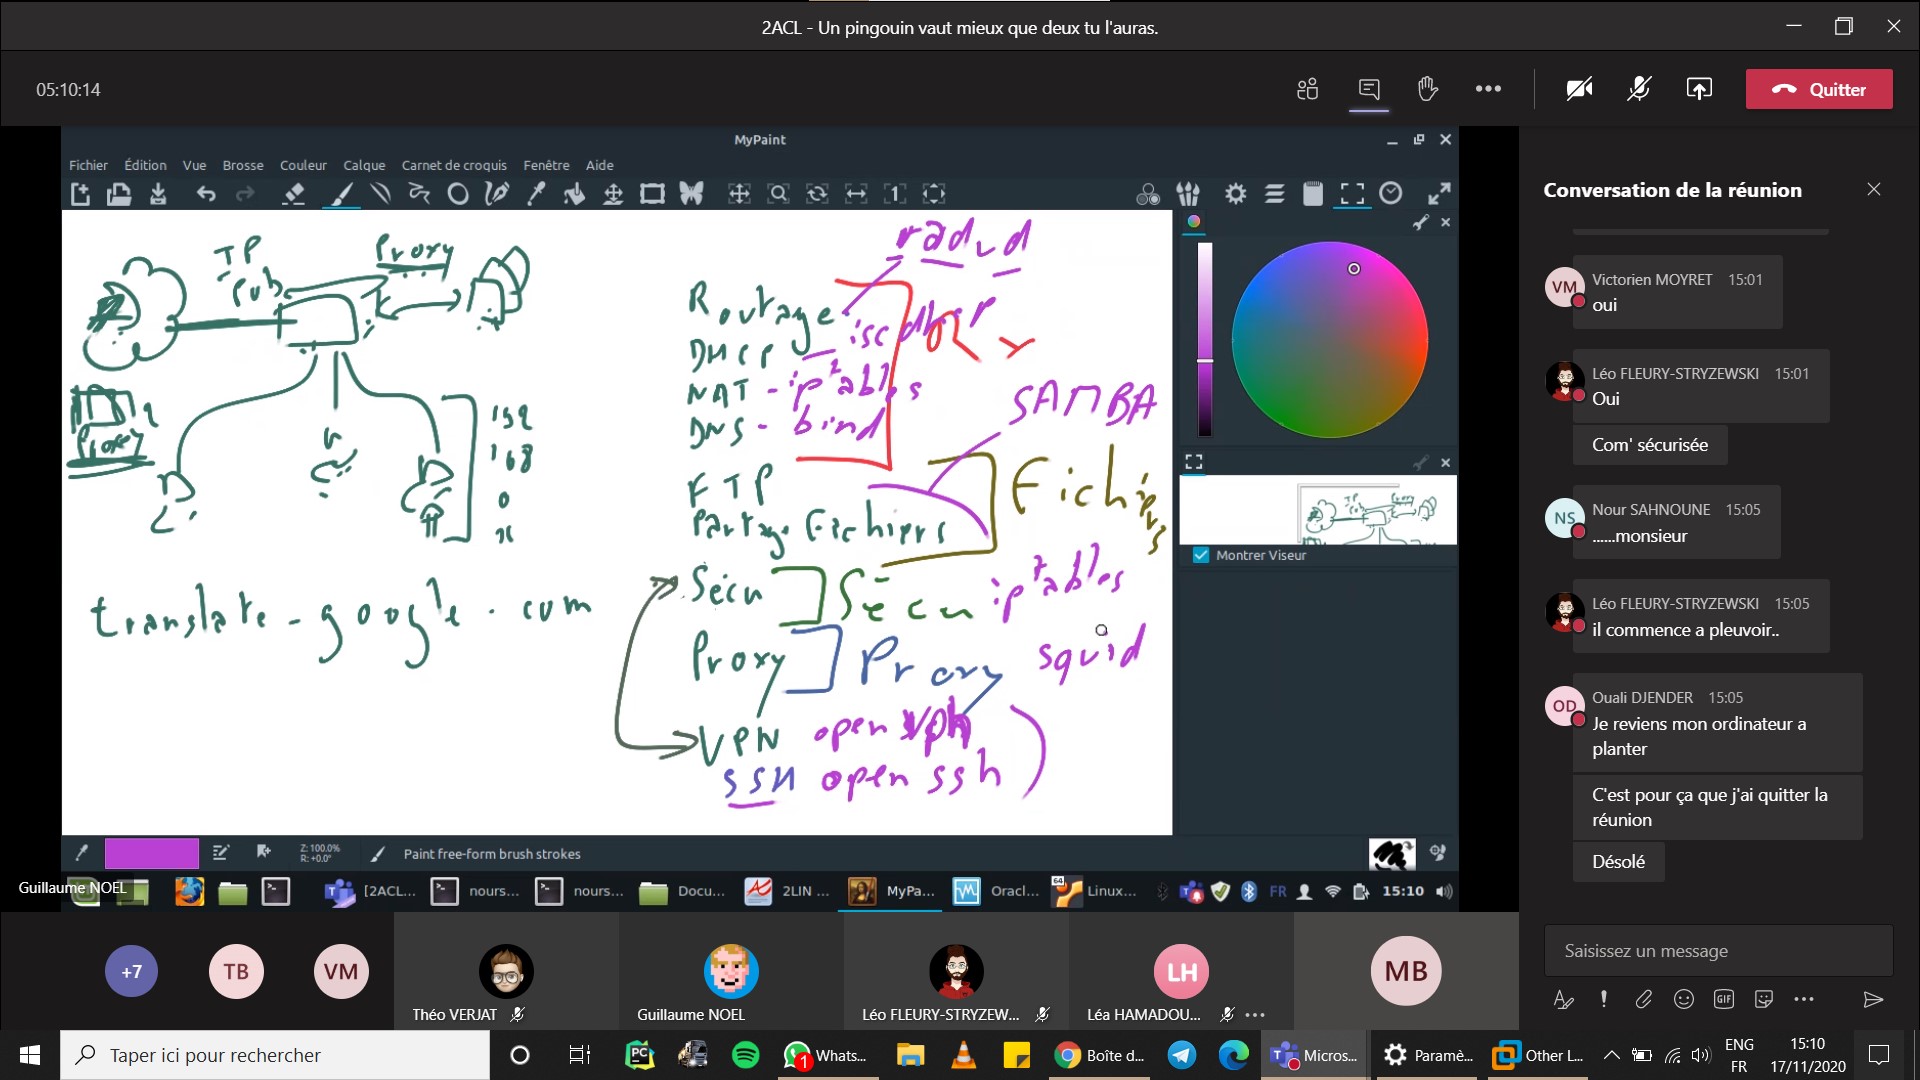 2ACL - Un pingouin vaut mieux que deux tu l'auras.
05:10:14
Quitter
MyPaint
Fichier Édition Vue Brosse Couleur Calque Carnet de croquis Fenêtre Aide
TP
Pub
Proxy
Proxy
192
168
0
x
translate.google.com
radvd
Routage
DHCP
isc dhcp
NAT - iptables
DNS - bind
SAMBA
FTP
Partage Fichiers
Fichiers
Sécu
Sécu
iptables
Proxy
Proxy
squid
VPN open vpn
SSH open ssh
Montrer Viseur
Z: 100.0%
R: +0.0°
Paint free-form brush strokes
Guillaume NOEL
[2ACL... nours... nours... Docu... 2LIN ... MyPa... Oracl... 64 Linux... FR 15:10
Conversation de la réunion
VM
Victorien MOYRET 15:01
oui
Léo FLEURY-STRYZEWSKI 15:01
Oui
Com' sécurisée
NS
Nour SAHNOUNE 15:05
......monsieur
Léo FLEURY-STRYZEWSKI 15:05
il commence a pleuvoir..
OD
Ouali DJENDER 15:05
Je reviens mon ordinateur a
planter
C'est pour ça que j'ai quitter la
réunion
Désolé
Saisissez un message
GIF
+7 TB VM LH MB
Théo VERJAT Guillaume NOEL Léo FLEURY-STRYZEW... Léa HAMADOU...
Taper ici pour rechercher
PC
1
Whats... Boîte d... Micros... Paramè... Other L...
ENG
FR
15:10
17/11/2020